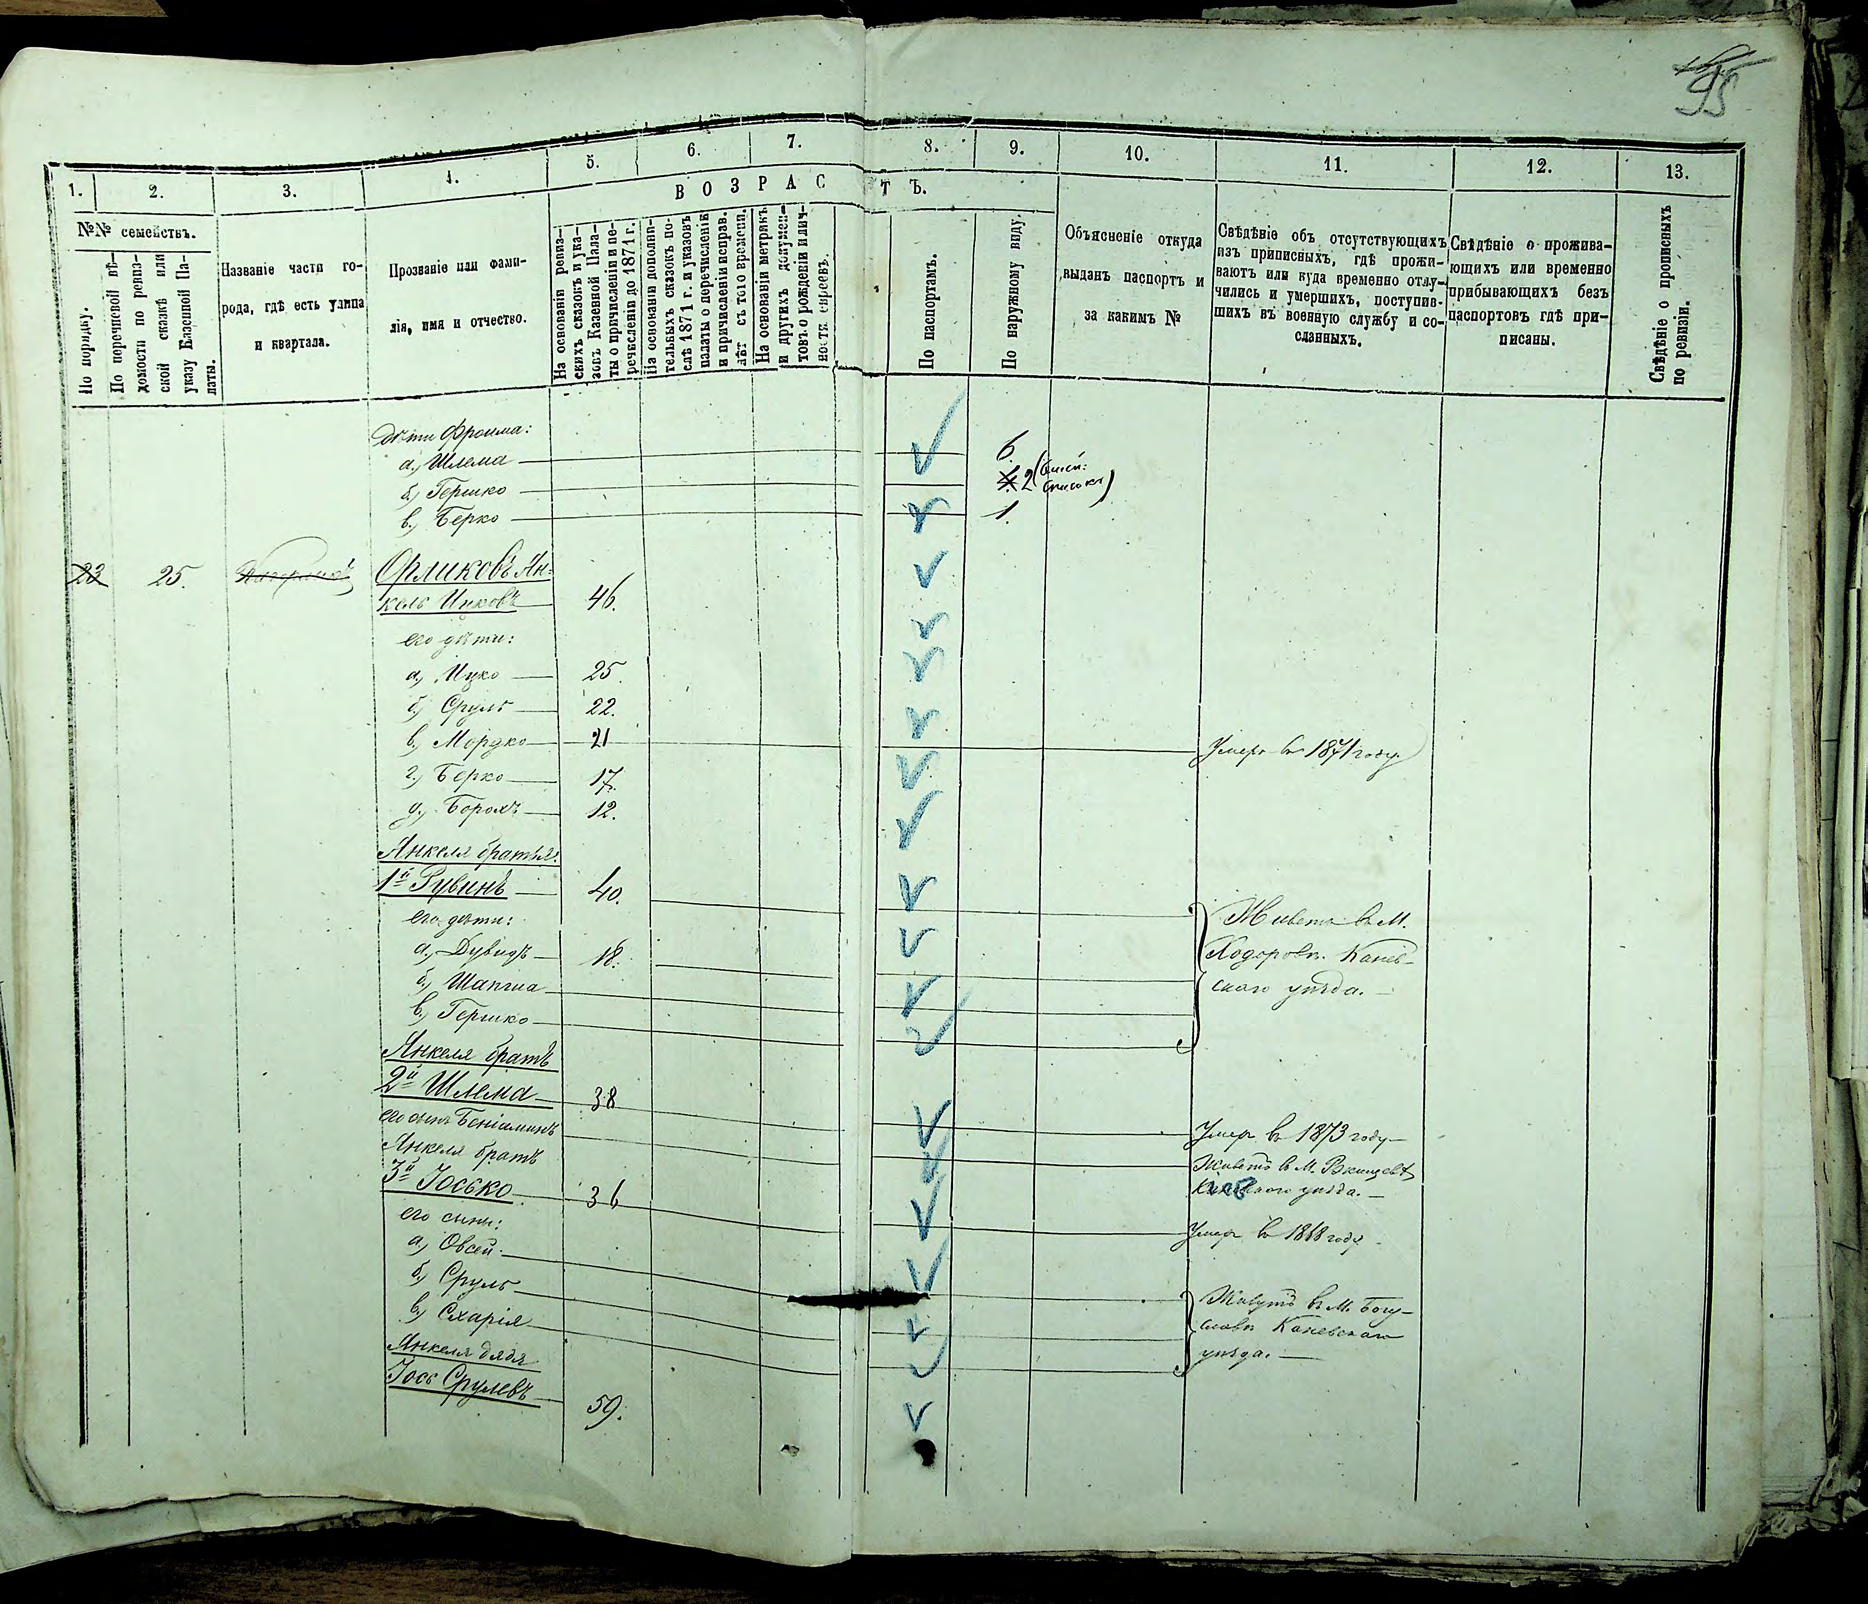 95
1.
2.
3.
4.
5.
6.
7.
8.
9.
10.
11.
12.
13.
ВОЗРАСТЪ.
№№ семействъ.
По порядку.
По перечневой вѣ-
домости по ревиз-
ской сказкѣ или
указу Казенной Па-
латы.
Названіе части го-
рода, гдѣ есть улица
и квартала.
Прозваніе или фами-
лія, имя и отчество.
На основаніи ревиз-
скихъ сказокъ и ука-
зовъ Казенной Пала-
ты о причисленіи и пе-
речисленіи до 1871 г.
На основаніи дополни-
тельныхъ сказокъ по-
слѣ 1871 г. и указовъ
палаты о перечисленіи
и причисленіи исправ.
лѣт съ того времени.
На основаніи метрикъ
и другихъ докумен-
товъ о рожденіи и лич-
ности евреевъ.
По паспортамъ.
По наружному виду.
Объясненіе откуда
выданъ паспортъ и
за какимъ №
Свѣдѣніе объ отсутствующихъ
изъ приписныхъ, гдѣ прожи-
ваютъ или куда временно отлу-
чились и умершихъ, поступив-
шихъ въ военную службу и со-
сланныхъ.
Свѣдѣніе о прожива-
ющихъ или временно
прибывающихъ безъ
паспортовъ гдѣ при-
писаны.
Свѣдѣніе о прописныхъ
по ревизіи.
дѣти Фроима:
а.) Шлема 6.
б.) Гершко 2
в.) Берко 1.
23 25. Орликовъ Ян-
кель Ицковъ 46.
его дѣти:
а) Ицко 25.
б.) Сруль 22.
в.) Мордко 21 Умеръ въ 1871 году
г.) Берко 17.
д.) Борохъ 12.
Янкеля братья:
1й Рувинъ 40.
его дѣти:
а.) Дувидъ 18.
б.) Шапсиа
в.) Гершко
Живетъ въ М.
Ходоровѣ Канев-
скаго уѣзда.
Янкеля братъ
2й Шлема 38 Умеръ въ 1873 году
его сынъ Беніаминъ Живетъ в М.
скаго уѣзда.
Янкеля братъ
3й Іосько 36 Умеръ въ 1868 году
его сыны:
а.) Овсей
б.) Сруль
в.) Схарія
Живутъ въ М. Богу-
славѣ Каневскаго
уѣзда.
Янкеля дядя
Іось Срулевъ 59.